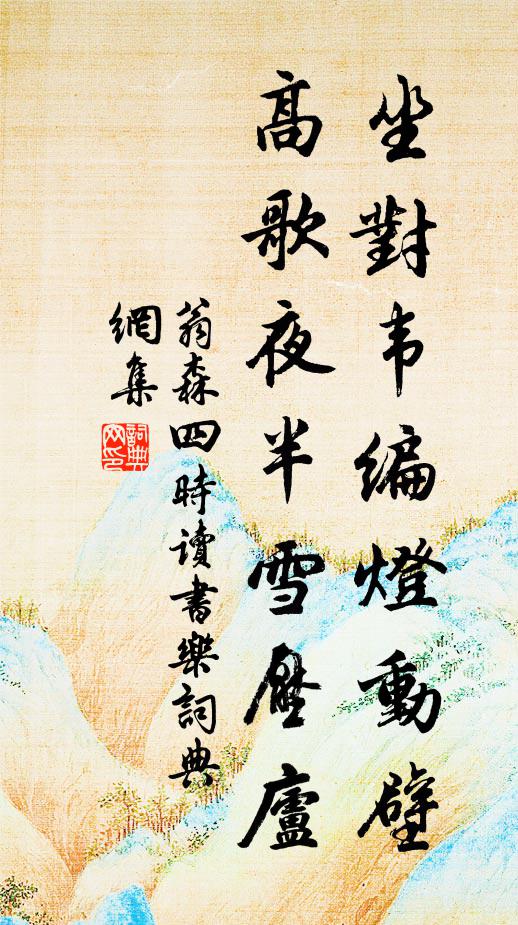 坐對韦编燈動壁
高歌夜半雪壓廬
翁森四時读書樂詞典
網集
詞典
网印